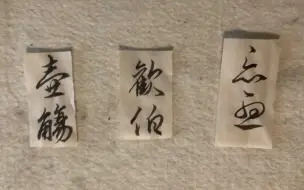 壺觴
歡伯
忘憂